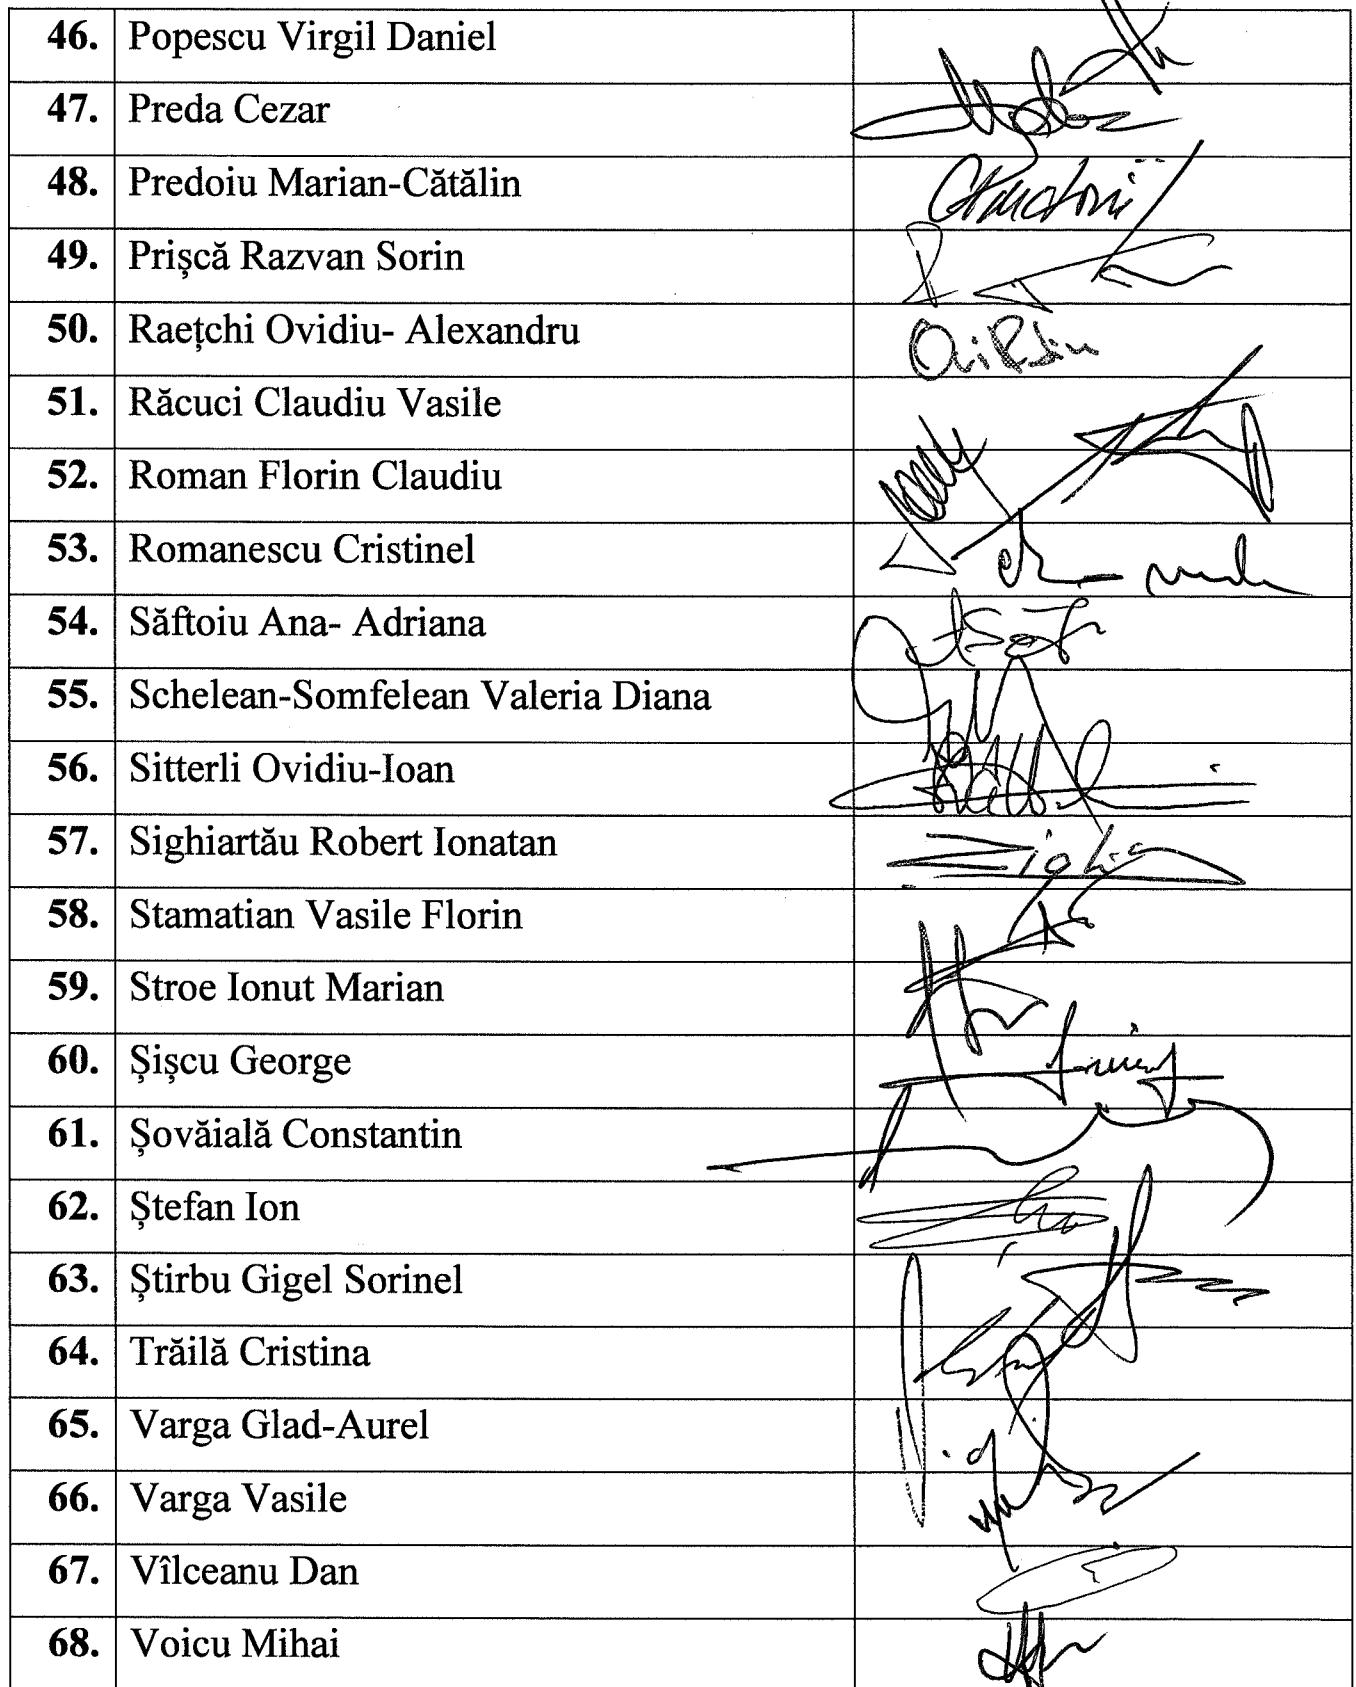 46. Popescu Virgil Daniel
47. Preda Cezar
48. Predoiu Marian-Cătălin
49. Prișcă Razvan Sorin
50. Raețchi Ovidiu- Alexandru
51. Răcuci Claudiu Vasile
52. Roman Florin Claudiu
53. Romanescu Cristinel
54. Săftoiu Ana- Adriana
55. Schelean-Somfelean Valeria Diana
56. Sitterli Ovidiu-Ioan
57. Sighiartău Robert Ionatan
58. Stamatian Vasile Florin
59. Stroe Ionut Marian
60. Șișcu George
61. Șovăială Constantin
62. Ștefan Ion
63. Știrbu Gigel Sorinel
64. Trăilă Cristina
65. Varga Glad-Aurel
66. Varga Vasile
67. Vîlceanu Dan
68. Voicu Mihai